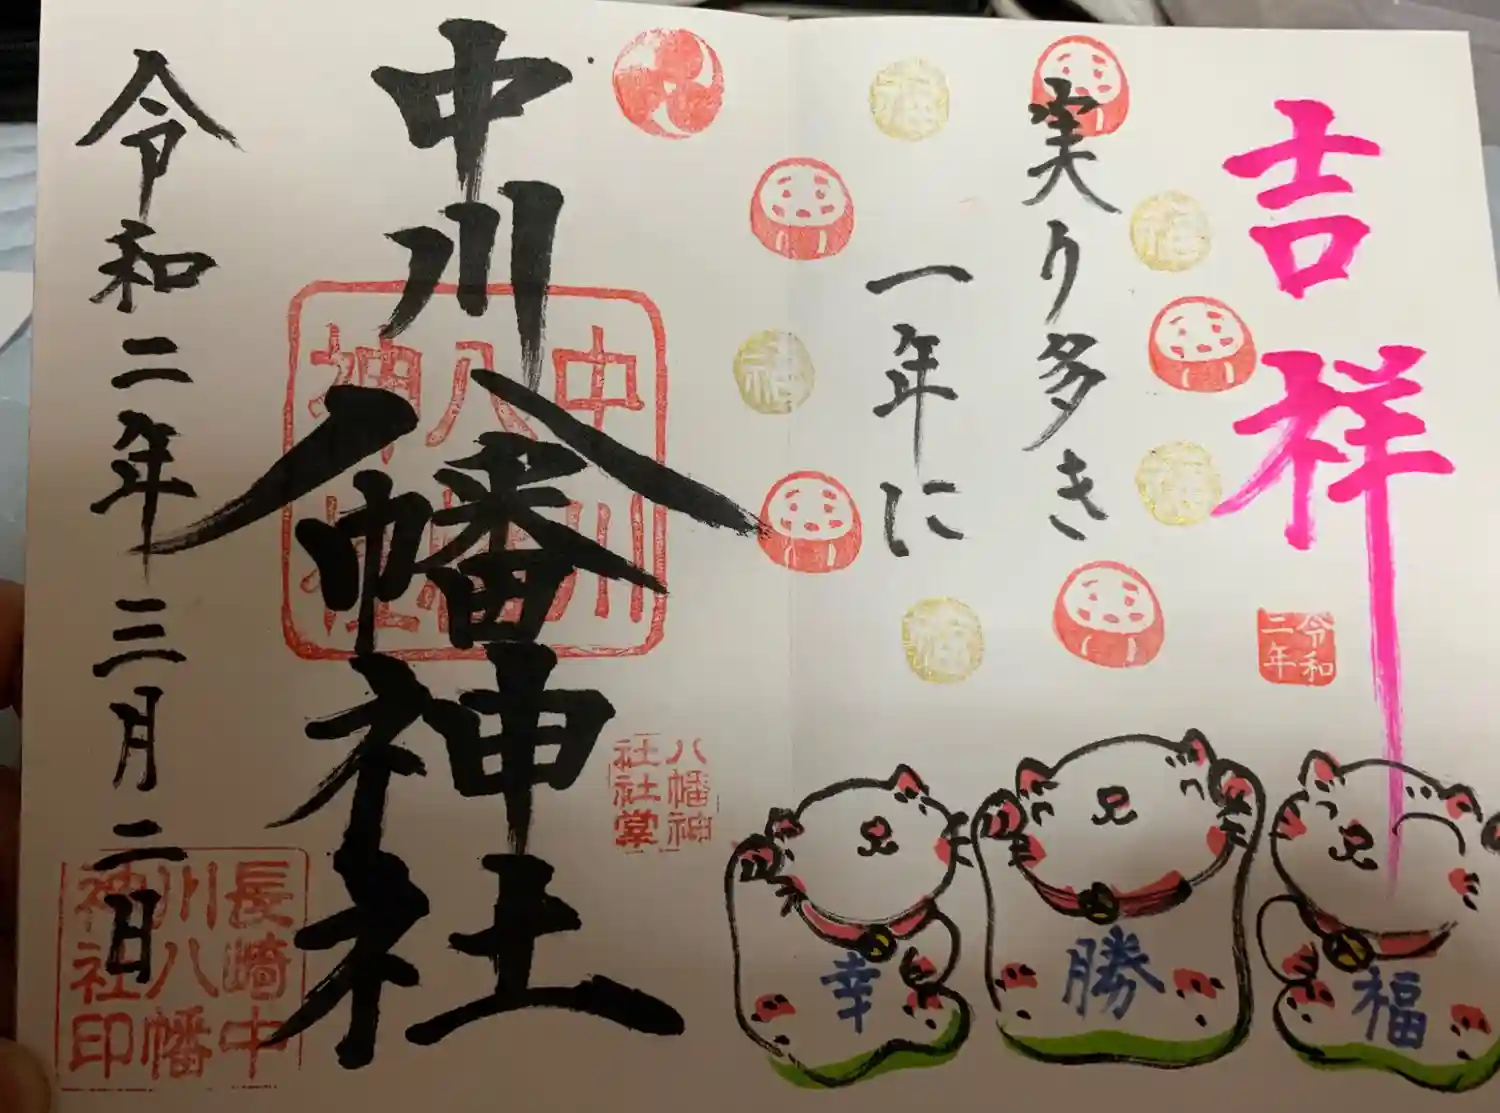 吉祥
実り多き
一年に
令和
二年
福
福
福
福
福
福
勝
幸
中川八幡神社
中川
八幡
神社
八幡神
社社掌
長崎中
川八幡
神社印
令和二年三月二日